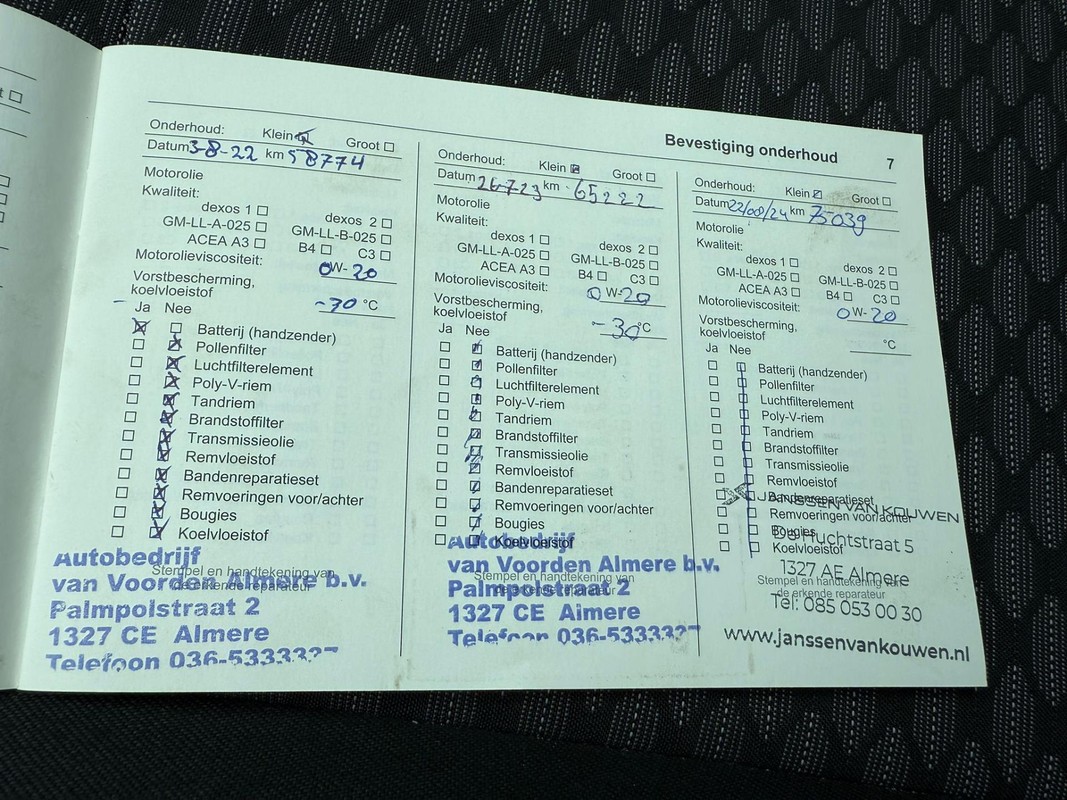 Bevestiging onderhoud 7
Onderhoud: Klein Groot
Datum 3-8-22 km 58774
Motorolie
Kwaliteit:
dexos 1 dexos 2
GM-LL-A-025 GM-LL-B-025
ACEA A3 B4 C3
Motorolieviscositeit: 0W-20
Vorstbescherming,
koelvloeistof -30 °C
Ja Nee
Batterij (handzender)
Pollenfilter
Luchtfilterelement
Poly-V-riem
Tandriem
Brandstoffilter
Transmissieolie
Remvloeistof
Bandenreparatieset
Remvoeringen voor/achter
Bougies
Koelvloeistof
Stempel en handtekening van
de erkende reparateur
Autobedrijf
van Voorden Almere b.v.
Palmpolstraat 2
1327 CE Almere
Telefoon 036-5333327
Onderhoud: Klein Groot
Datum 26723 km 65222
Motorolie
Kwaliteit:
dexos 1 dexos 2
GM-LL-A-025 GM-LL-B-025
ACEA A3 B4 C3
Motorolieviscositeit: 0W-20
Vorstbescherming,
koelvloeistof -30 °C
Ja Nee
Batterij (handzender)
Pollenfilter
Luchtfilterelement
Poly-V-riem
Tandriem
Brandstoffilter
Transmissieolie
Remvloeistof
Bandenreparatieset
Remvoeringen voor/achter
Bougies
Koelvloeistof
Stempel en handtekening van
de erkende reparateur
Autobedrijf
van Voorden Almere b.v.
Palmpolstraat 2
1327 CE Almere
Telefoon 036-5333327
Onderhoud: Klein Groot
Datum 22/08/24 km 75039
Motorolie
Kwaliteit:
dexos 1 dexos 2
GM-LL-A-025 GM-LL-B-025
ACEA A3 B4 C3
Motorolieviscositeit: 0W-20
Vorstbescherming,
koelvloeistof °C
Ja Nee
Batterij (handzender)
Pollenfilter
Luchtfilterelement
Poly-V-riem
Tandriem
Brandstoffilter
Transmissieolie
Remvloeistof
Bandenreparatieset
Remvoeringen voor/achter
Bougies
Koelvloeistof
Stempel en handtekening van
de erkende reparateur
JANSSEN VAN KOUWEN
De Huchtstraat 5
1327 AE Almere
Tel: 085 053 00 30
www.janssenvankouwen.nl